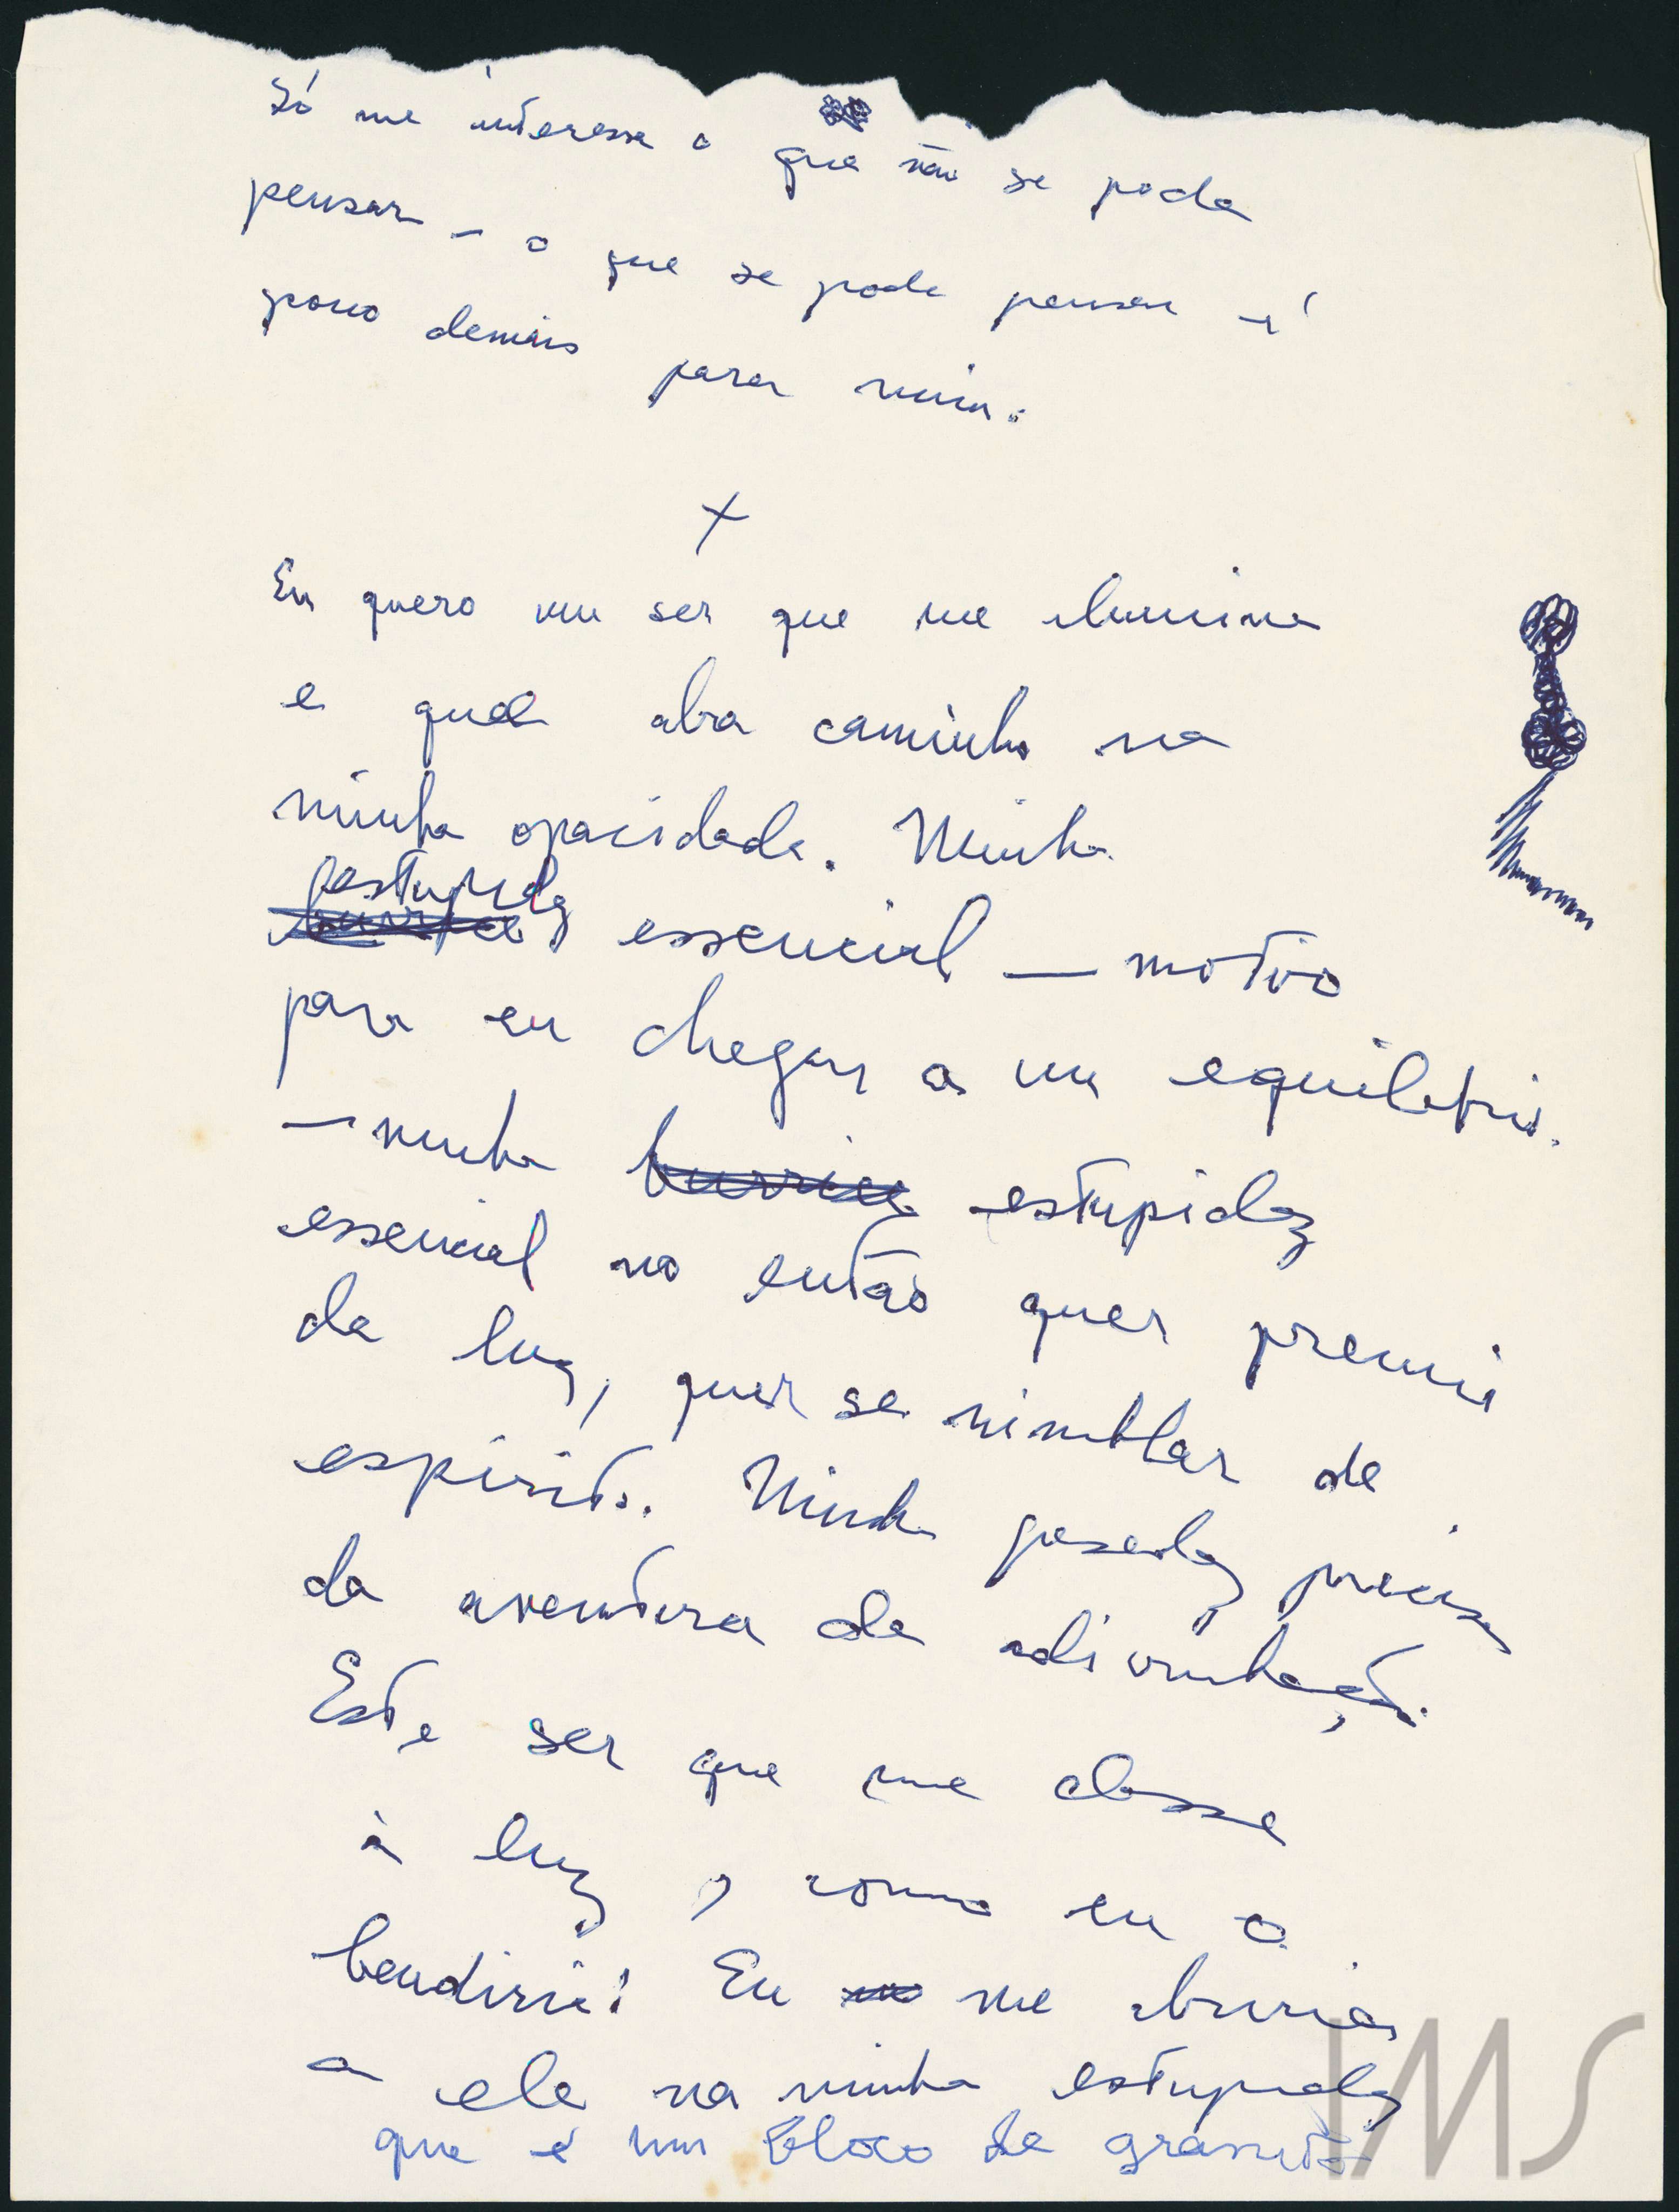 Só me interessa o que não se pode
pensar – o que se pode pensar é
pouco demais para mim.
+
Eu quero um ser que me ilumine
e que abra caminho na
minha opacidade. Minha
estupidez
burrice essencial — motivo
para eu chegar a um equilíbrio.
— minha burrice estupidez
essencial no então quer premio
de luz, quer se nimblar de
espirito. Minha pesadez precisa
da aventura da adivinhação.
Este ser que me desse
à luz, como eu o
bendiria! Eu me abriria
a ele na minha estupidez
que é um bloco de granito
IMS